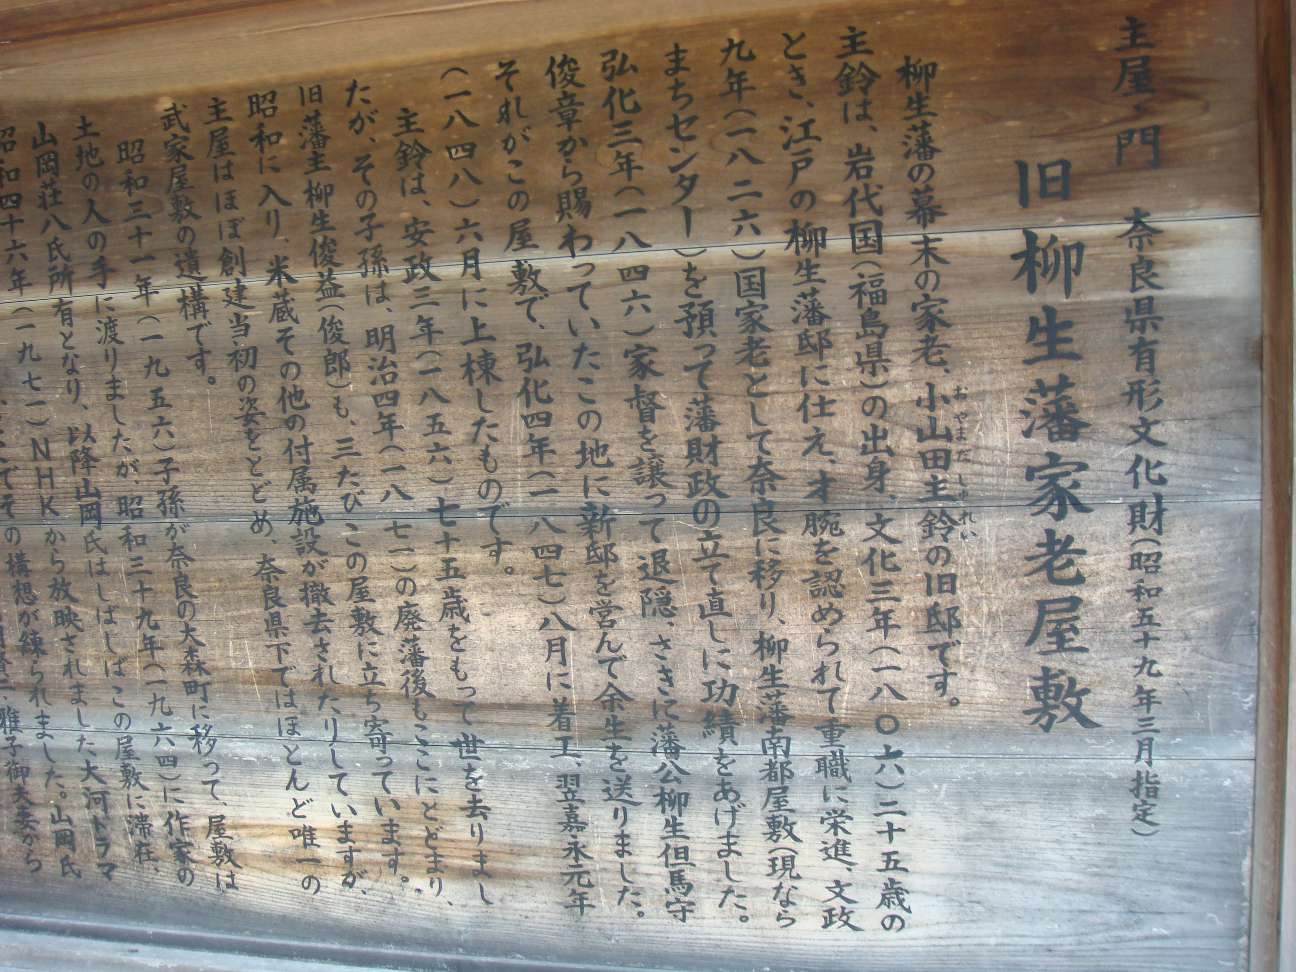 主屋・門 奈良県有形文化財(昭和五十九年三月指定)
旧柳生藩家老屋敷
柳生藩の幕末の家老、小山田主鈴の旧邸です。
おやまだ しゅれい
主鈴は、岩代国(福島県)の出身、文化三年(一八〇六)二十五歳の
とき、江戸の柳生藩邸に仕え、才腕を認められて重職に栄進、文政
九年(一八二六)国家老として奈良に移り、柳生藩南都屋敷(現なら
まちセンター)を預って藩財政の立て直しに功績をあげました。
弘化三年(一八四六)家督を譲って退隠、さきに藩公柳生但馬守
俊章から賜わっていたこの地に新邸を営んで余生を送りました。
それがこの屋敷で、弘化四年(一八四七)八月に着工、翌嘉永元年
(一八四八)六月に上棟したものです。
主鈴は、安政三年(一八五六)七十五歳をもって世を去りまし
たが、その子孫は、明治四年(一八七一)の廃藩後もここにとどまり、
旧藩主柳生俊益(俊郎)も、三たびこの屋敷に立ち寄っています。
昭和に入り、米蔵その他の付属施設が撤去されたりしていますが、
主屋はほぼ創建当初の姿をとどめ、奈良県下ではほとんど唯一の
武家屋敷の遺構です。
昭和三十一年(一九五六)子孫が奈良の大森町に移って、屋敷は
土地の人の手に渡りましたが、昭和三十九年(一九六四)に作家の
山岡荘八氏所有となり、以降山岡氏はしばしばこの屋敷に滞在、
昭和四十六年(一九七一)NHKから放映されました大河ドラマ
でその構想が練られました。山岡氏
雅子御夫妻から